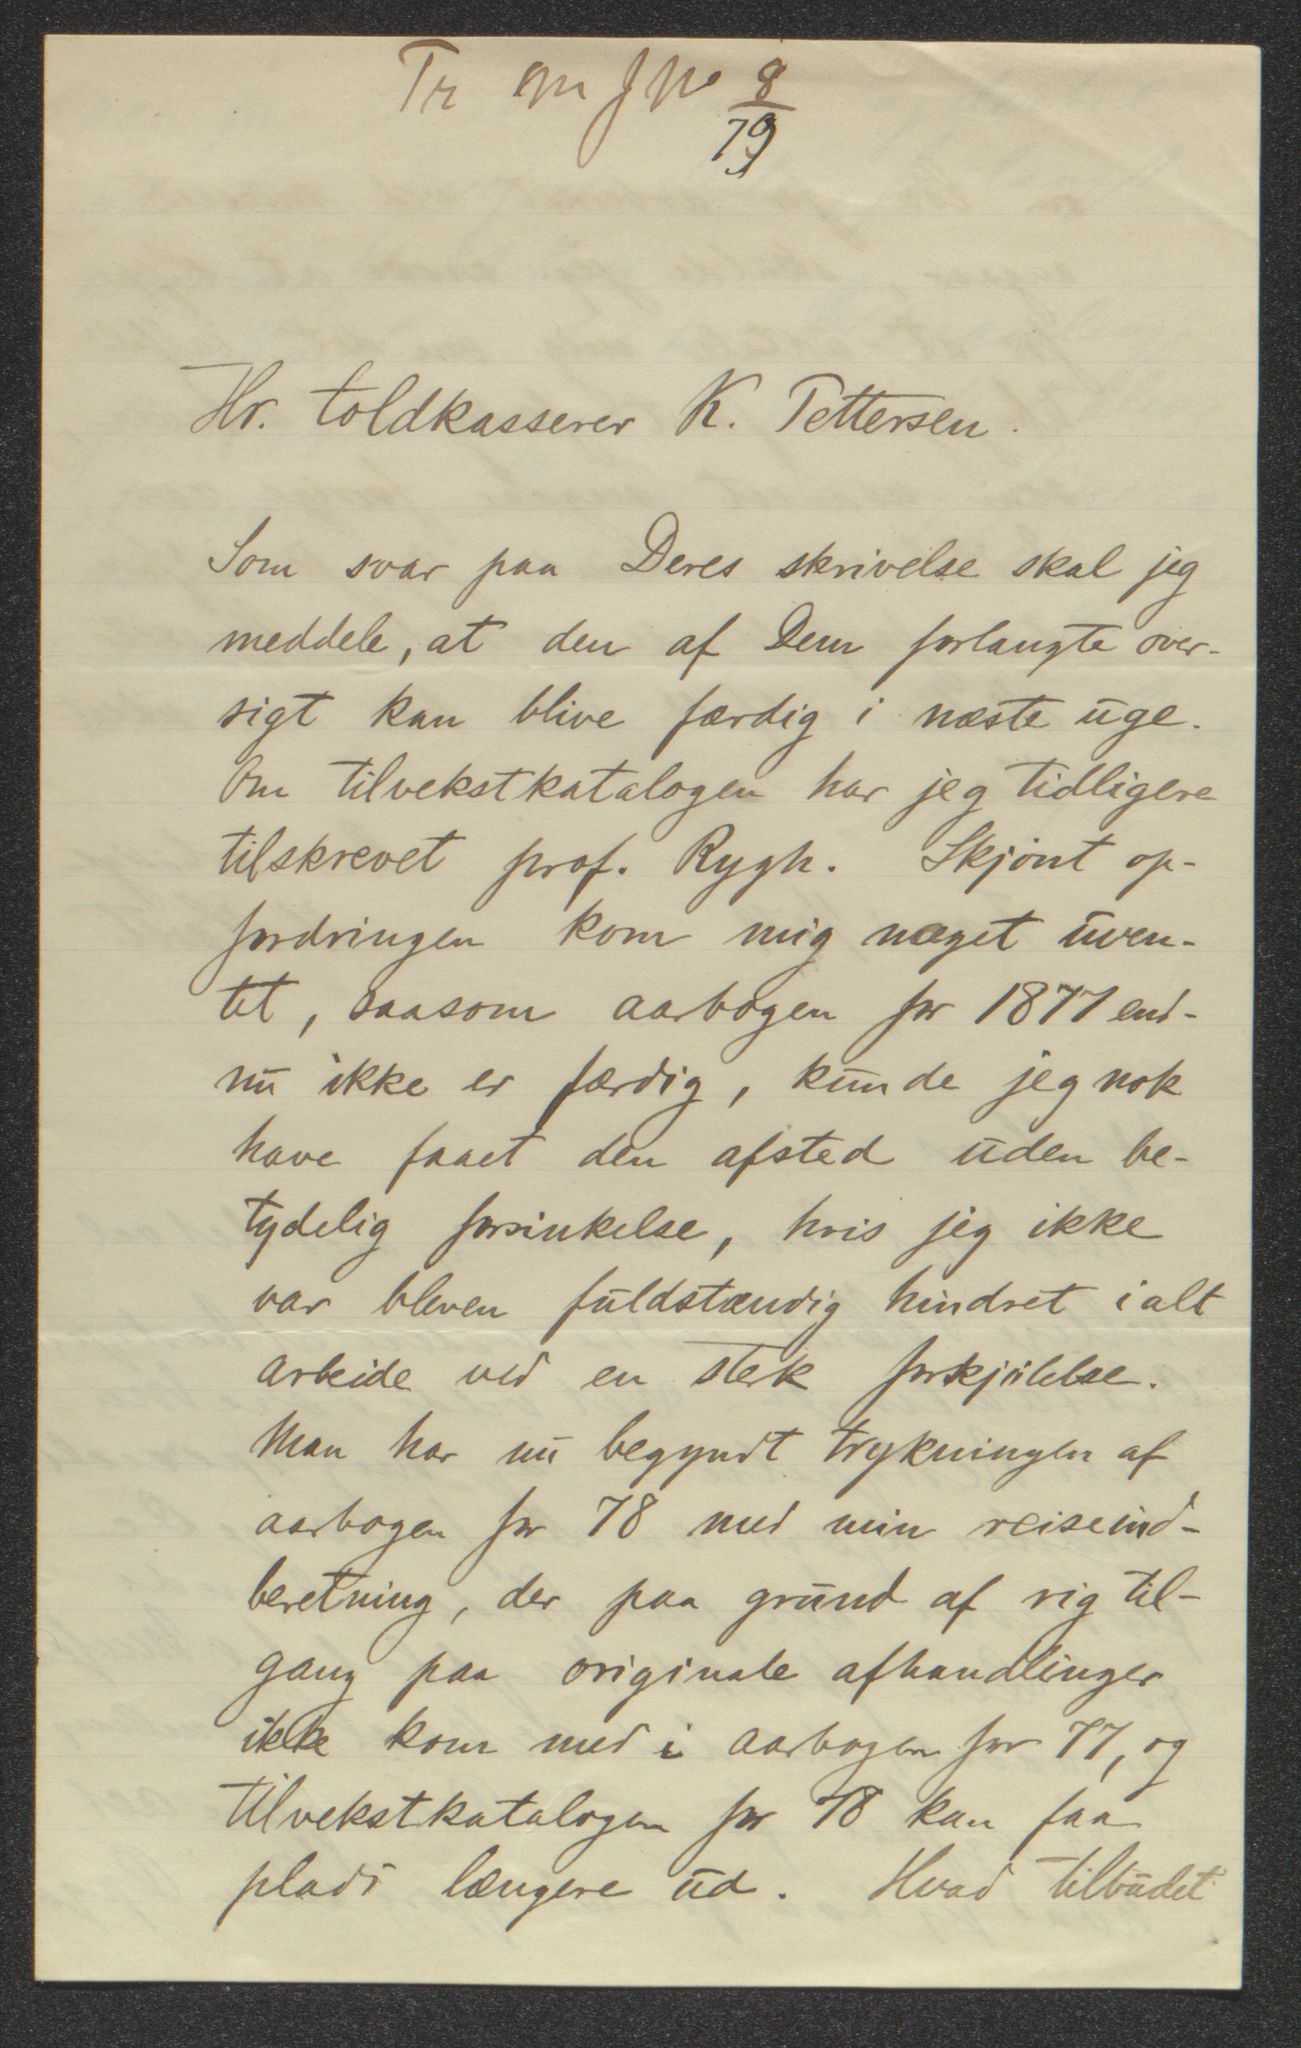 Tr M J No 8/79
Hr. toldkasserer K. Pettersen.
Som svar paa Deres skrivelse skal jeg
meddele, at den af Dem forlangte over-
sigt kan blive færdig i næste uge.
Om tilvekstkatalogen har jeg tidligere
tilskrevet prof. Rygh. Skjønt op-
fordringen kom mig noget uven-
tet, saasom aarbogen for 1877 end-
nu ikke er færdig, kunde jeg nok
have faaet den afsted uden be-
tydelig forsinkelse, hvis jeg ikke
var bleven fuldstændig hindret i alt
arbeide ved en sterk forkjølelse.
Man har nu begyndt trykningen af
aarbogen for 78 med min reiseind-
beretning, der paa grund af rig til-
gang paa originale afhandlinger
ikke kom med i aarbogen for 77, og
tilvekstkatalogen for 78 kan faa
plads længere ud. Hvad tilbudet